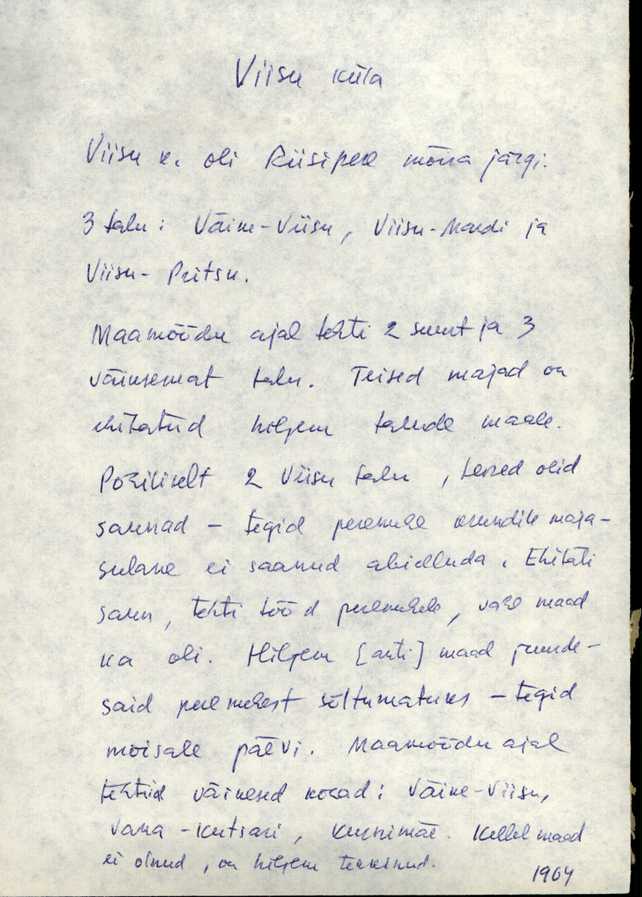 Viisu küla
Viisu k. oli Riisipere mõisa järgi.
3 talu: Väike-Viisu, Viisu-Mardi ja
Viisu-Pritsu.
Maamõõdu ajal tehti 2 suurt ja 3
väiksemat talu. Teised majad on
ehitatud hiljem talude maale.
Põliselt 2 Viisu talu, teised olid
saunad - tegid peremehe maja-
sulane ei saanud abielluda. Ehitati
saun, tehti tööd peremehele, vähe maad
ka oli. Hiljem [anti] maad juurde-
said peremehest sõltumatuks - tegid
mõisale päevi. Maamõõdu ajal
tehtud väiksed kohad: Väike-Viisu,
Vana-Kutsari, Kuusimäe. Kellel maad
ei olnud, on hiljem tekkinud.
1964